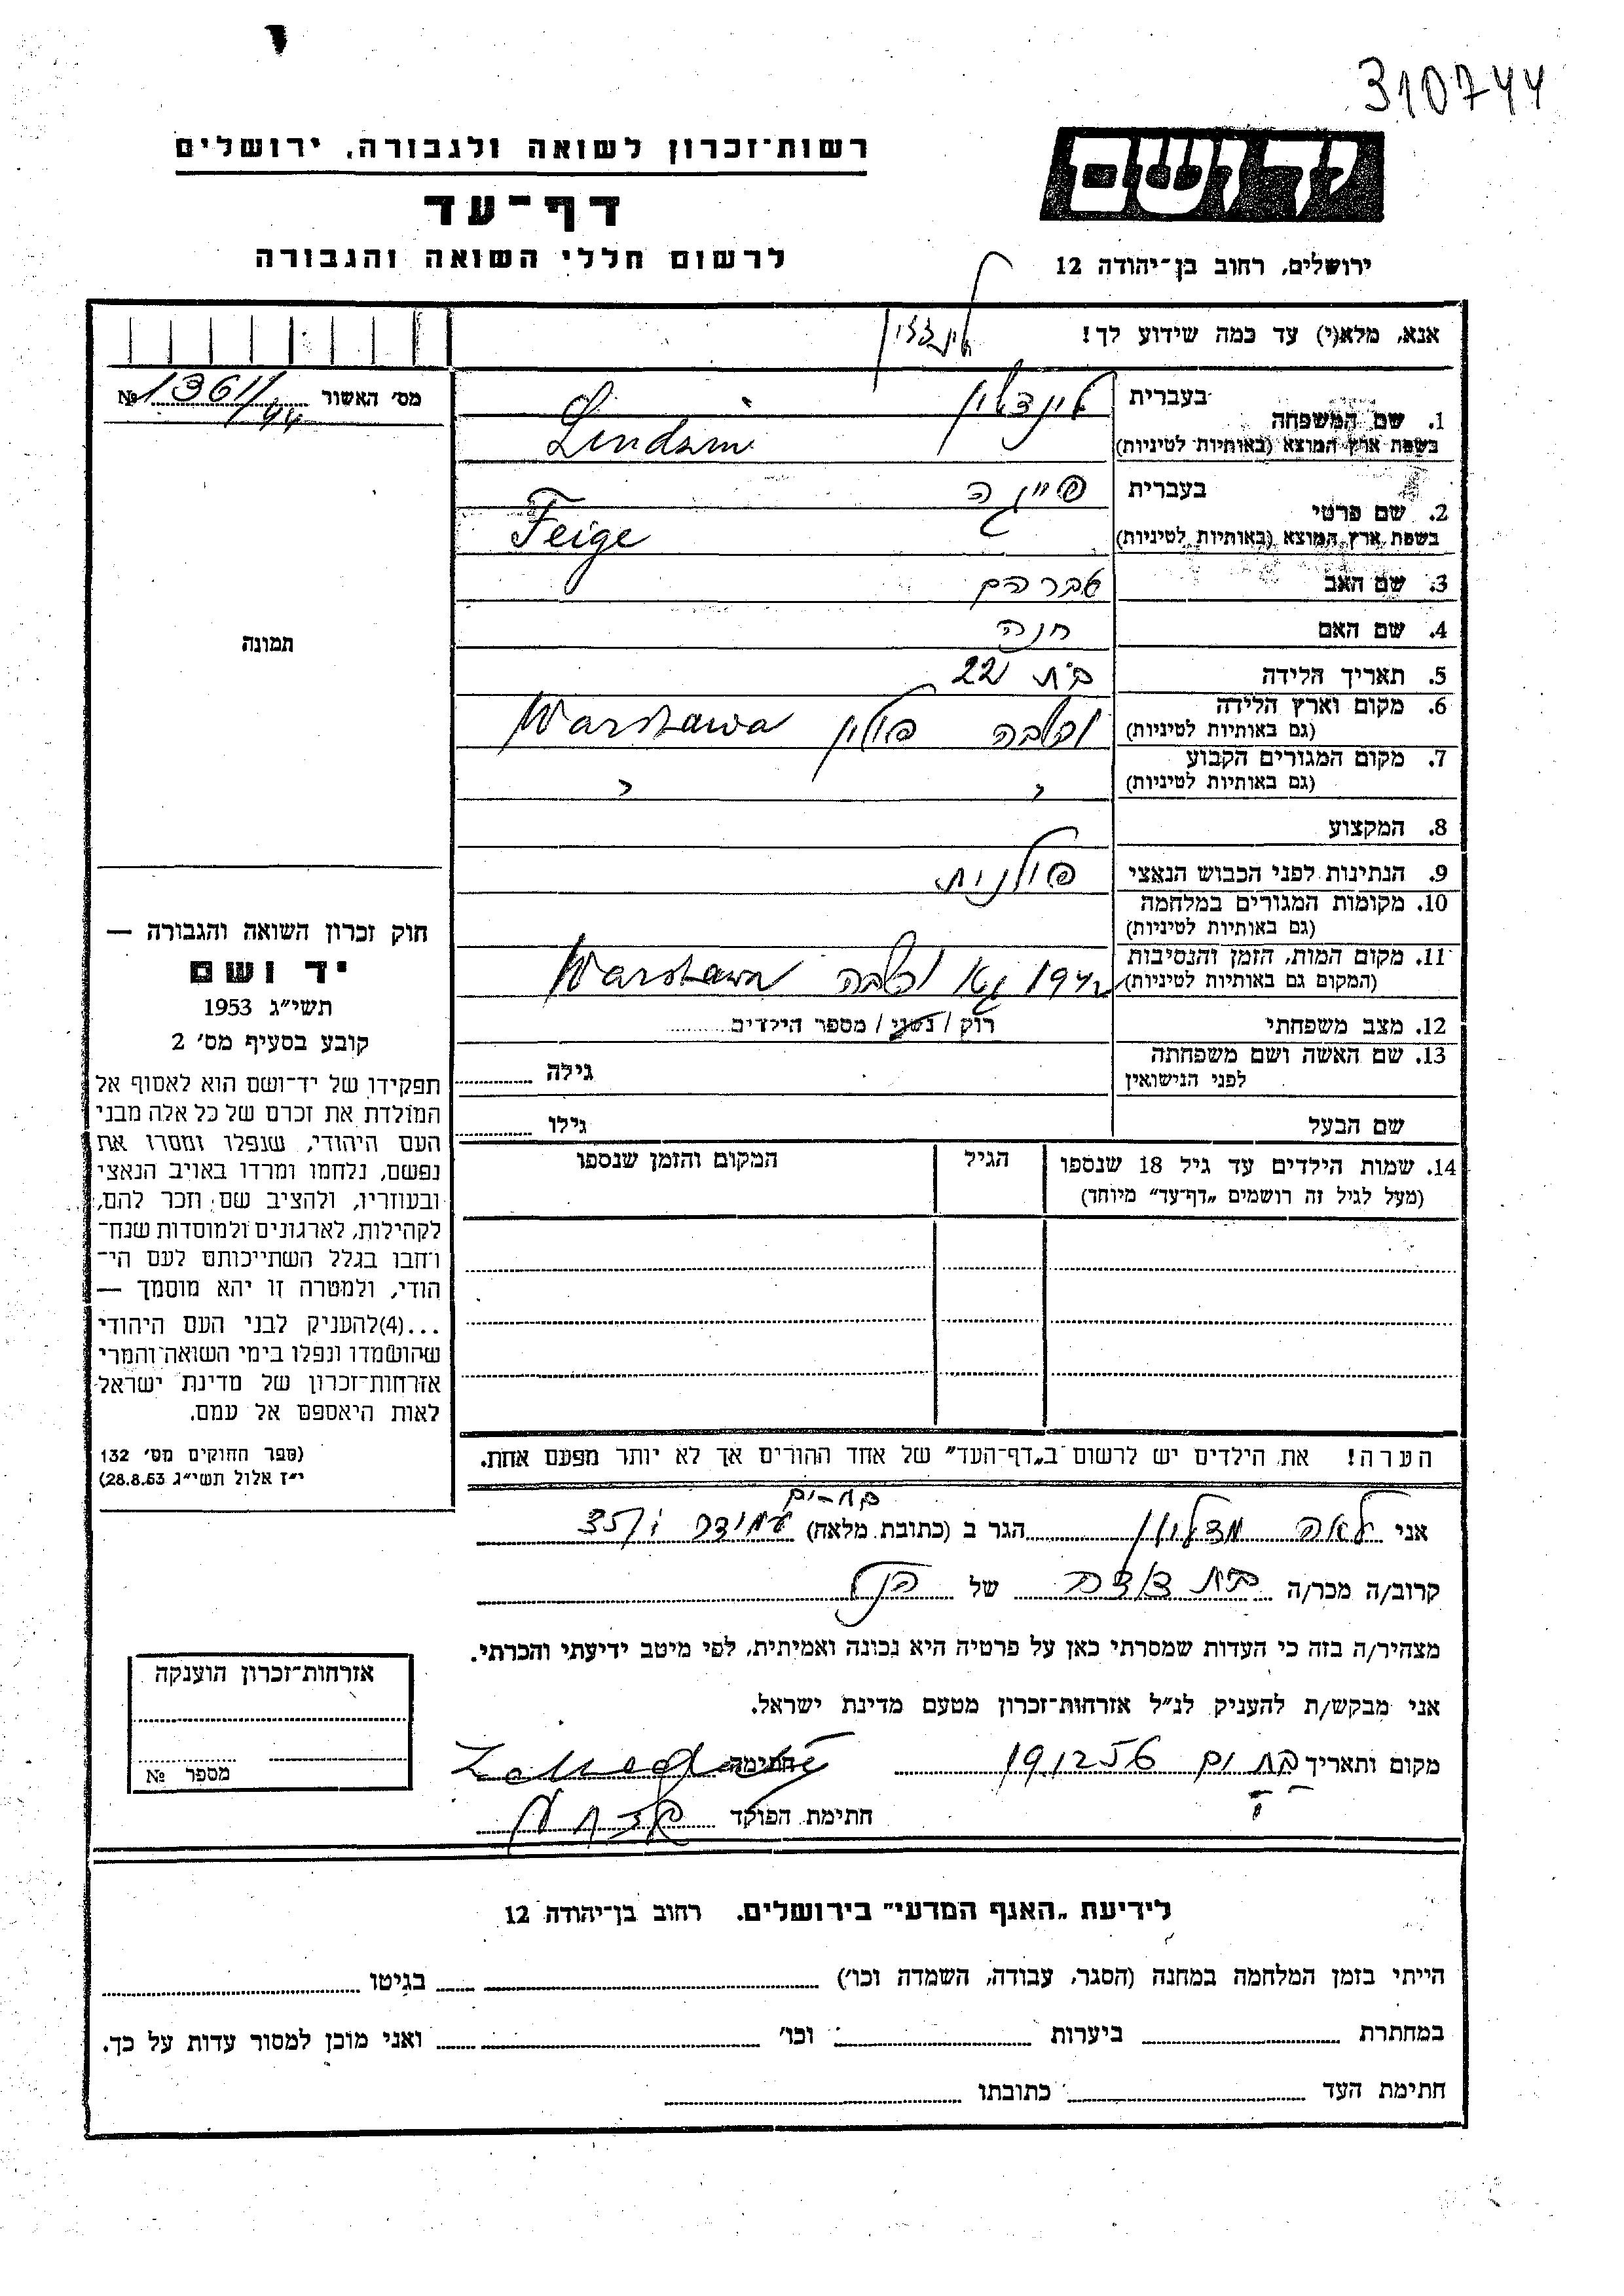 310744
רשות־זכרון לשואה ולגבורה, ירושלים
יד ושם
דף־עד
לרשום חללי השואה והגבורה
ירושלים, רחוב בן־יהודה 12
אנא, מלא(י) עד כמה שידוע לך!
מס' האשור № 1361/44
1. שם המשפחה
בעברית
בשפת ארץ המוצא (באותיות לטיניות)
2. שם פרטי
בעברית פייגה
בשפת ארץ המוצא (באותיות לטיניות) Feige
3. שם האב אברהם
4. שם האם חנה
5. תאריך הלידה בת 22
6. מקום וארץ הלידה
(גם באותיות לטיניות) ורשה פולין Warszawa
7. מקום המגורים הקבוע
(גם באותיות לטיניות)
8. המקצוע
9. הנתינות לפני הכבוש הנאצי פולנית
10. מקומות המגורים במלחמה
(גם באותיות לטיניות)
11. מקום המות, הזמן והנסיבות
(המקום גם באותיות לטיניות) 1942 ורשה Warszawa
12. מצב משפחתי רוק / נשוי / מספר הילדים
13. שם האשה ושם משפחתה
לפני הנישואין
גילה
שם הבעל
גילו
14. שמות הילדים עד גיל 18 שנספו הגיל המקום והזמן שנספו
(מעל לגיל זה רושמים „דף־עד” מיוחד)
תמונה
חוק זכרון השואה והגבורה —
יד ושם
תשי״ג 1953
קובע בסעיף מס' 2
תפקידו של יד־ושם הוא לאסוף אל
המולדת את זכרם של כל אלה מבני
העם היהודי, שנפלו ומסרו את
נפשם, נלחמו ומרדו באויב הנאצי
ובעוזריו, ולהציב שם וזכר להם,
לקהילות, לארגונים ולמוסדות שנח־
רחבו בגלל השתייכותם לעם הי־
הודי, ולמטרה זו יהא מוסמך —
...(4)להעניק לבני העם היהודי
שהושמדו ונפלו בימי השואה והמרי
אזרחות־זכרון של מדינת ישראל
לאות היאספם אל עמם.
(ספר החוקים מס' 132
י״ז אלול תשי״ג 28.8.53)
הערה! את הילדים יש לרשום ב„דף־העד” של אחד ההורים אך לא יותר מפעם אחת.
אני לאה הגר ב (כתובת מלאה)
קרוב/ה מכר/ה בת דודה של הנ״ל
מצהיר/ה בזה כי העדות שמסרתי כאן על פרטיה היא נכונה ואמיתית, לפי מיטב ידיעתי והכרתי.
אני מבקש/ת להעניק לנ״ל אזרחות־זכרון מטעם מדינת ישראל.
מקום ותאריך בת ים 19.12.56 חתימה
חתימת הפוקד
אזרחות־זכרון הוענקה
מספר №
לידיעת „האגף המדעי” בירושלים. רחוב בן־יהודה 12
הייתי בזמן המלחמה במחנה (הסגר, עבודה, השמדה וכו') בגיטו
במחתרת ביערות וכו' ואני מוכן למסור עדות על כך.
חתימת העד כתובתו